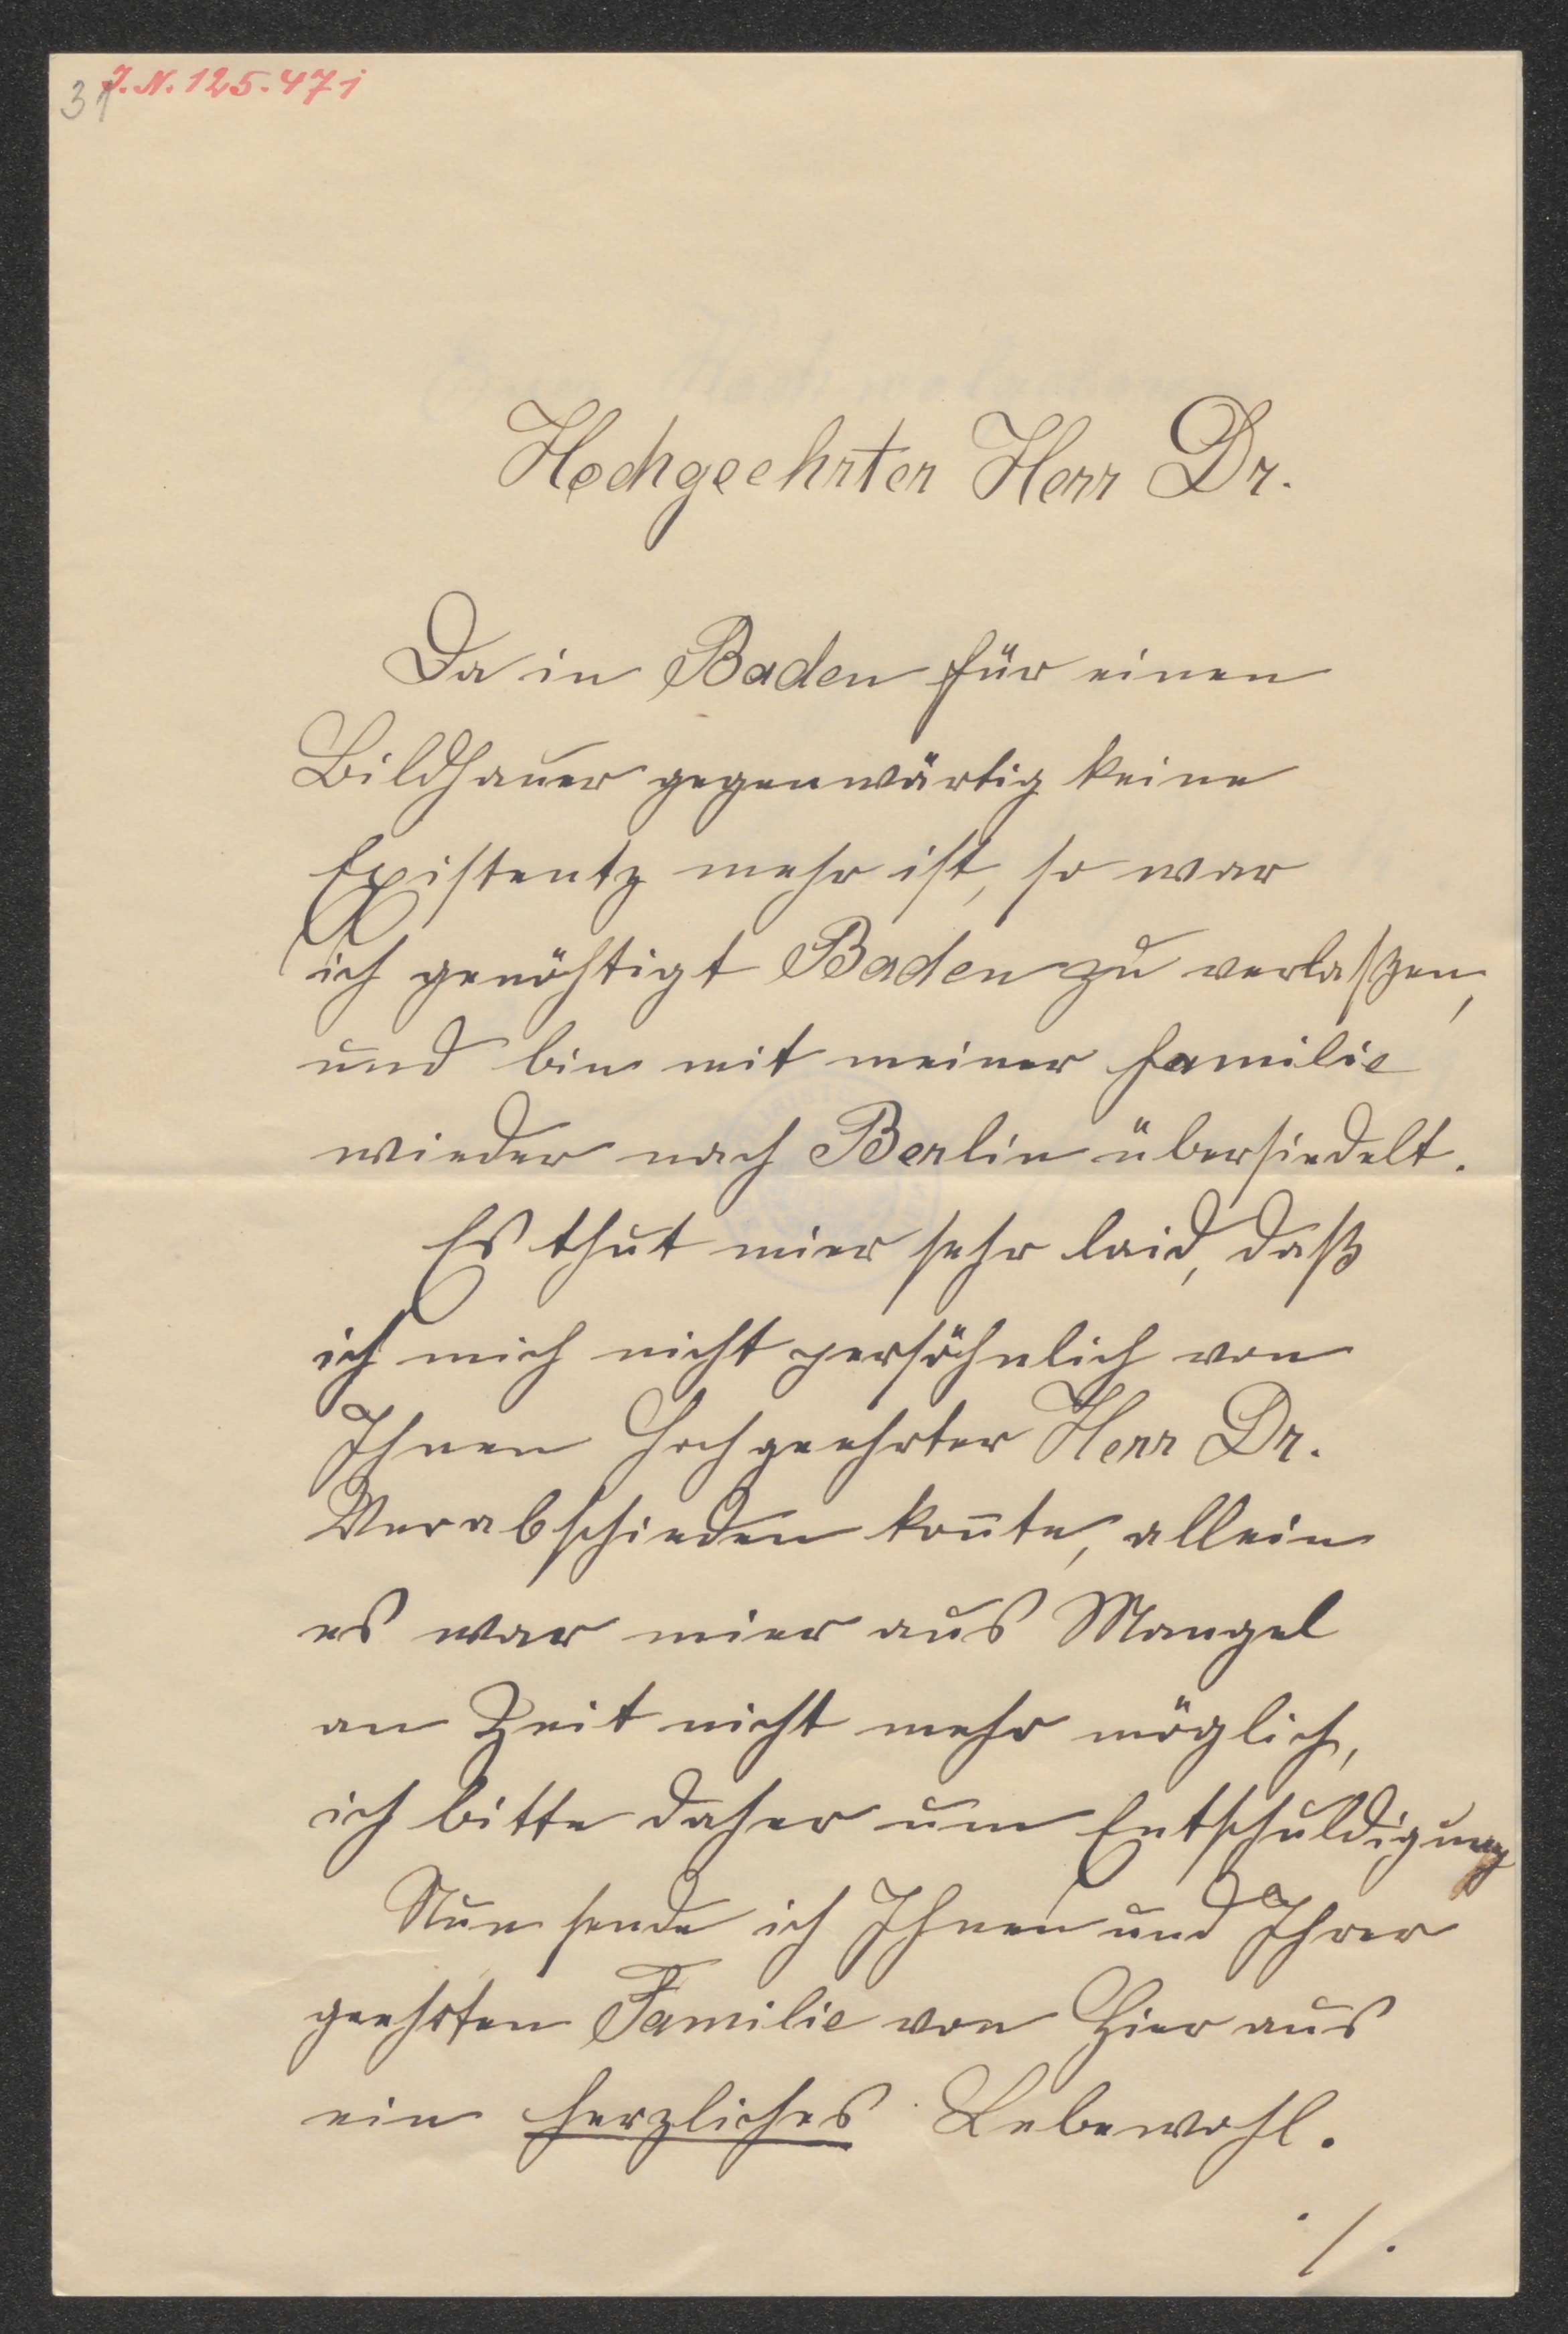 31
J.N. 125.471
Hochgeehrter Herr Dr.
Da in Baden für einen
Bildhauer gegenwärtig keine
Existentz mehr ist, so war
ich genöhtigt Baden zu verlaßen,
und bin mit meiner Familie
wieder nach Berlin übersiedelt.
Es thut mier sehr laid, daß
ich mich nicht persöhnlich von
Ihnen Hochgeehrter Herr Dr.
Verabschieden kon̄te, allein
es war mier aus Mangel
an Zeit nicht mehr möglich,
ich bitte daher um Entschuldigung
Nun sende ich Ihnen und Ihrer
geehrten Familie von Hier aus
ein herzliches Lebewohl.
./.